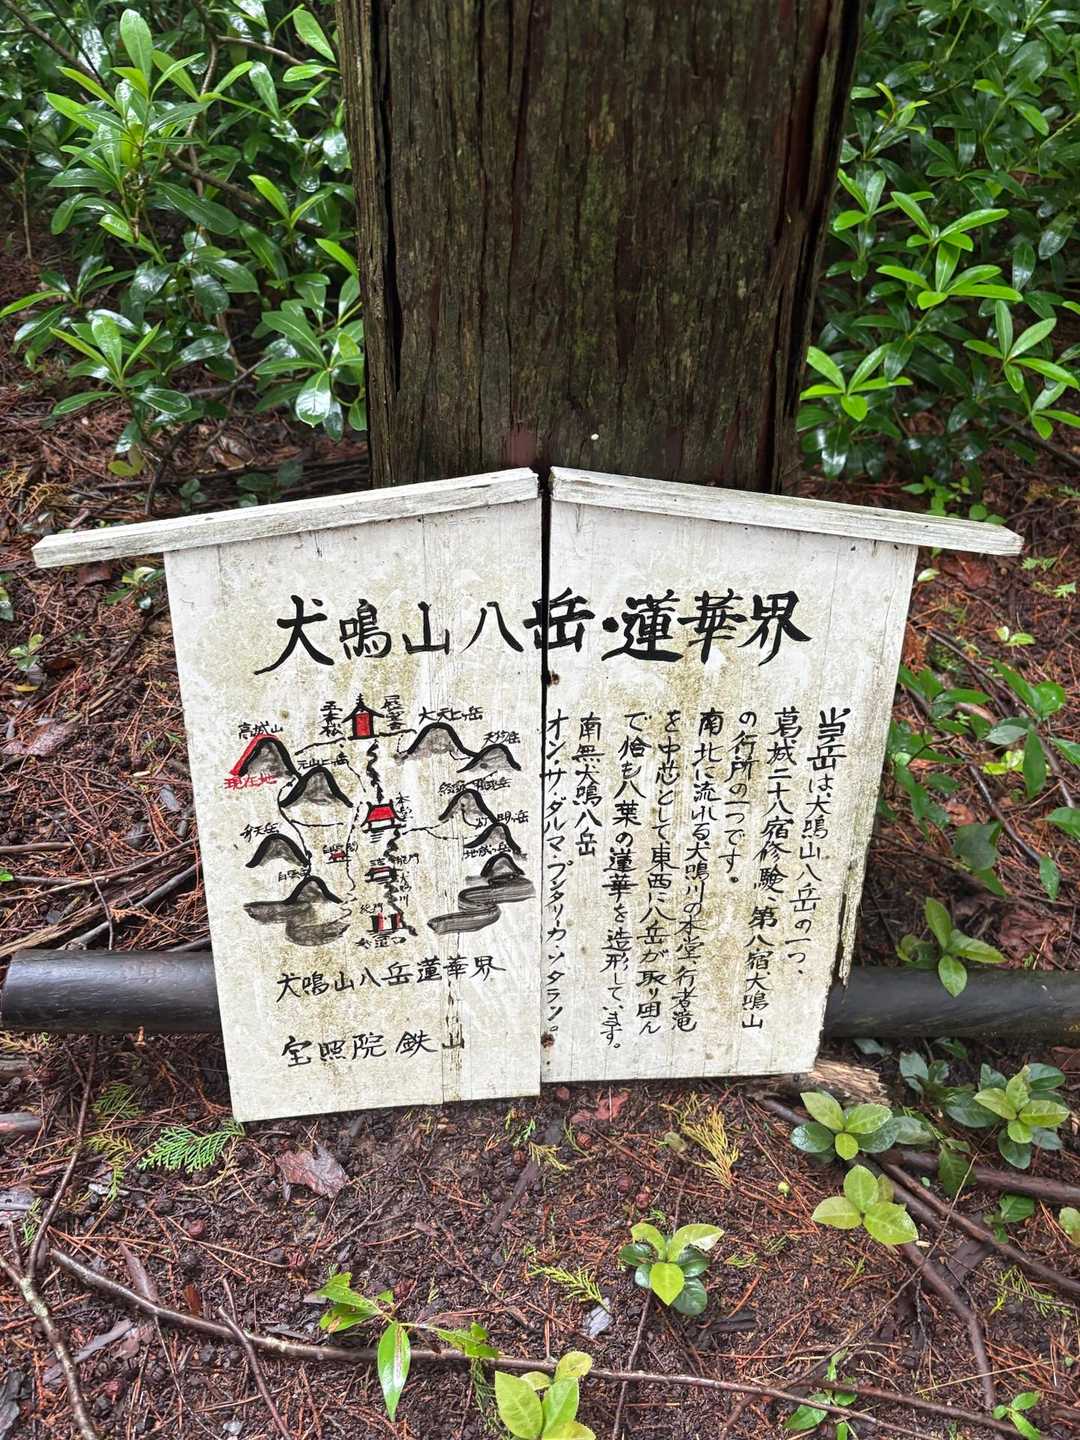 犬鳴山八岳・蓮華界
当岳は犬鳴山八岳の一つ、
葛城二十八宿修験、第八宿犬鳴山
の行所の一つです。
南北に流れる犬鳴川の本堂、行者滝
を中芯として東西に八岳が取り囲ん
で恰も八葉の蓮華を造形しています。
南無犬鳴八岳
オン・サ・ダルマ・プンダリ・カ・ソタラン。
高城山
現在地
五本松
大天上ヶ岳
天狗岳
元山上ヶ岳
本堂
弁天岳
地蔵岳
犬鳴山八岳蓮華界
宝照院 鉄山